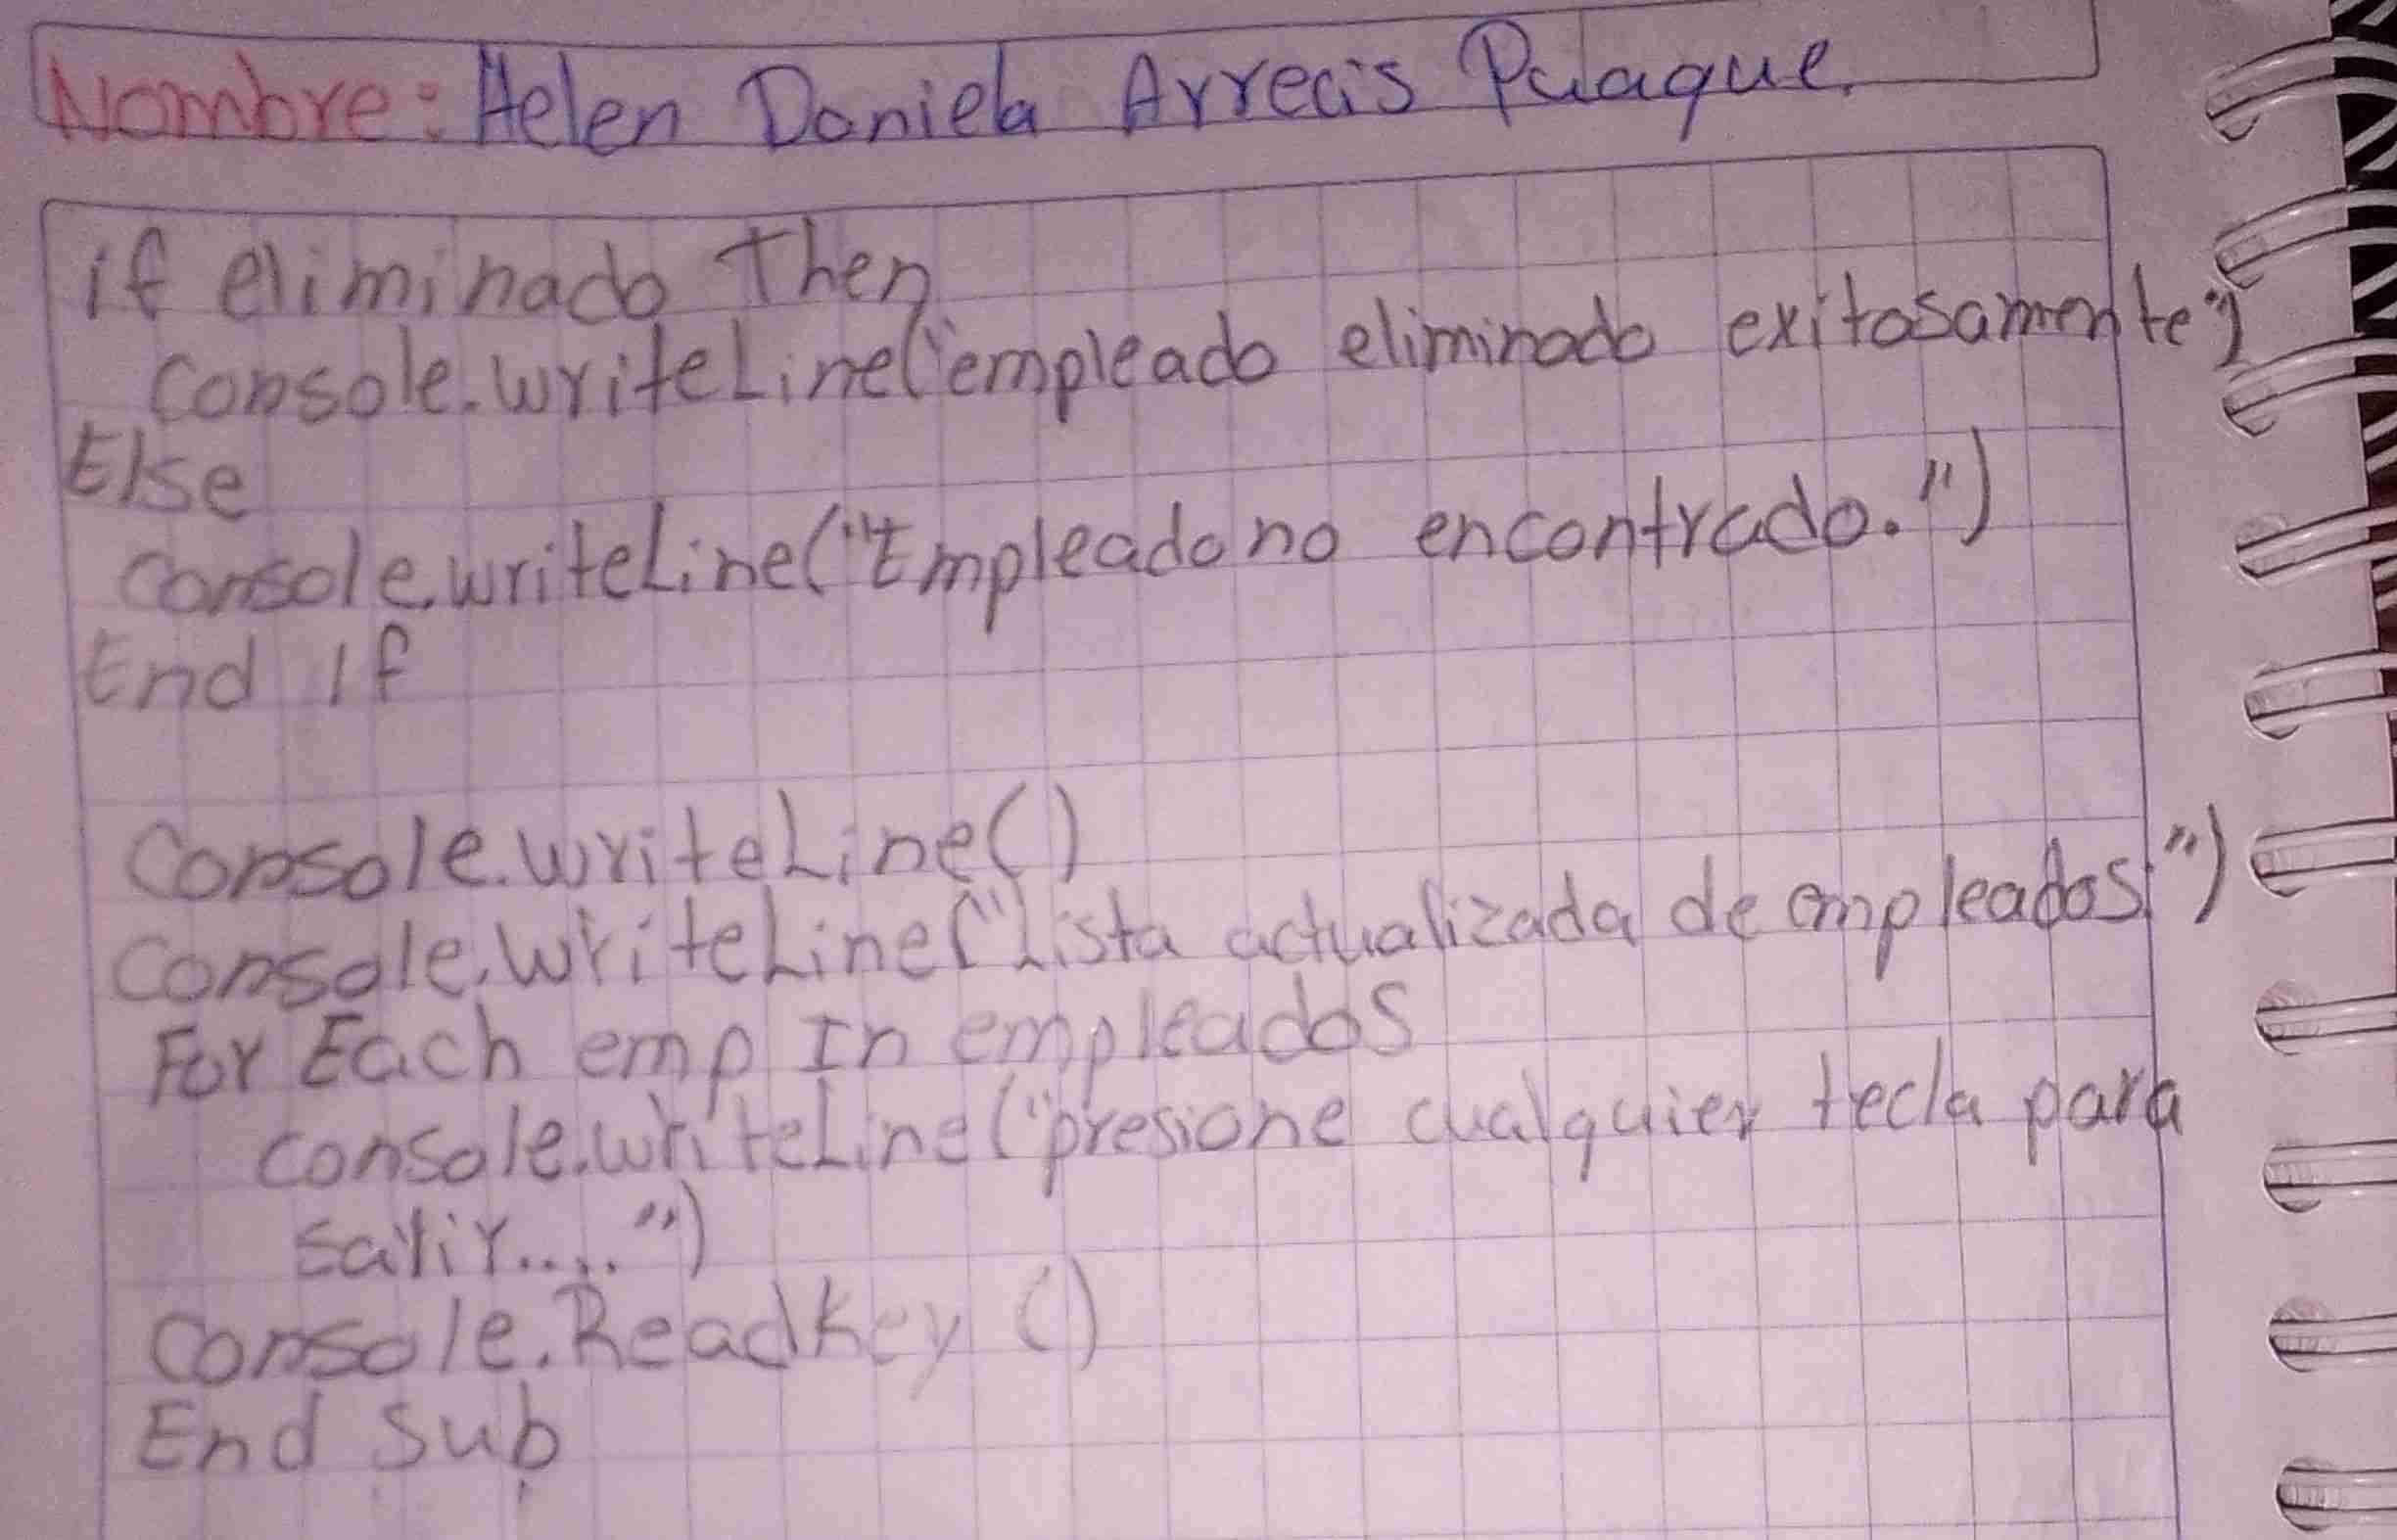 Nombre: Helen Daniela Arrecis
if eliminado Then
Console.writeLine("empleado eliminado exitosamente")
Else
Console.writeLine("Empleado no encontrado.")
End If
Console.writeLine()
Console.WriteLine("Lista actualizada de empleados:")
For Each emp In empleados
console.writeLine("presione cualquier tecla para
salir....")
Console.ReadKey ()
End Sub